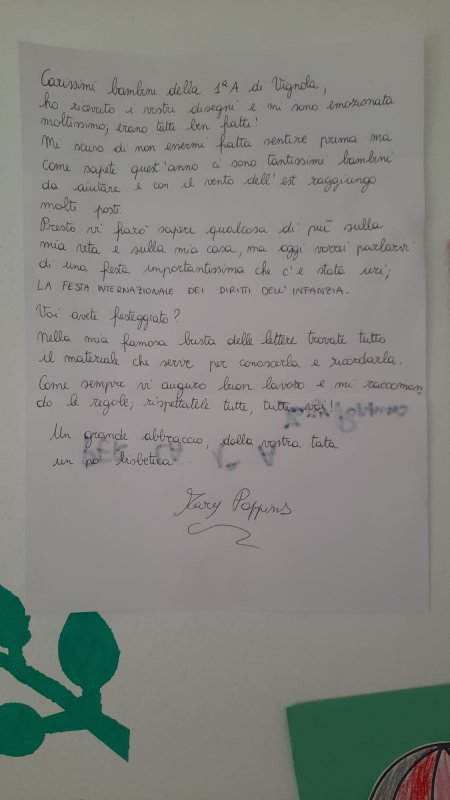 Carissimi bambini della 1ªA di Vignola,
ho ricevuto i vostri disegni e mi sono emozionata
moltissimo; erano tutti ben fatti!
Mi scuso di non essermi fatta sentire prima ma
come sapete quest'anno ci sono tantissimi bambini
da aiutare e con il vento dell'est raggiungo
molti posti.
Presto vi farò sapere qualcosa di più sulla
mia vita e sulla mia casa, ma oggi vorrei parlarvi
di una festa importantissima che c'è stata ieri;
LA FESTA INTERNAZIONALE DEI DIRITTI DELL'INFANZIA.
Voi avete festeggiato?
Nella mia famosa busta delle lettere trovate tutto
il materiale che serve per conoscerla e ricordarla.
Come sempre vi auguro buon lavoro e mi raccoman
do le regole; rispettatele tutte, tutti voi!
Un grande abbraccio, dalla vostra tata
un po' bisbetica...
Mary Poppins